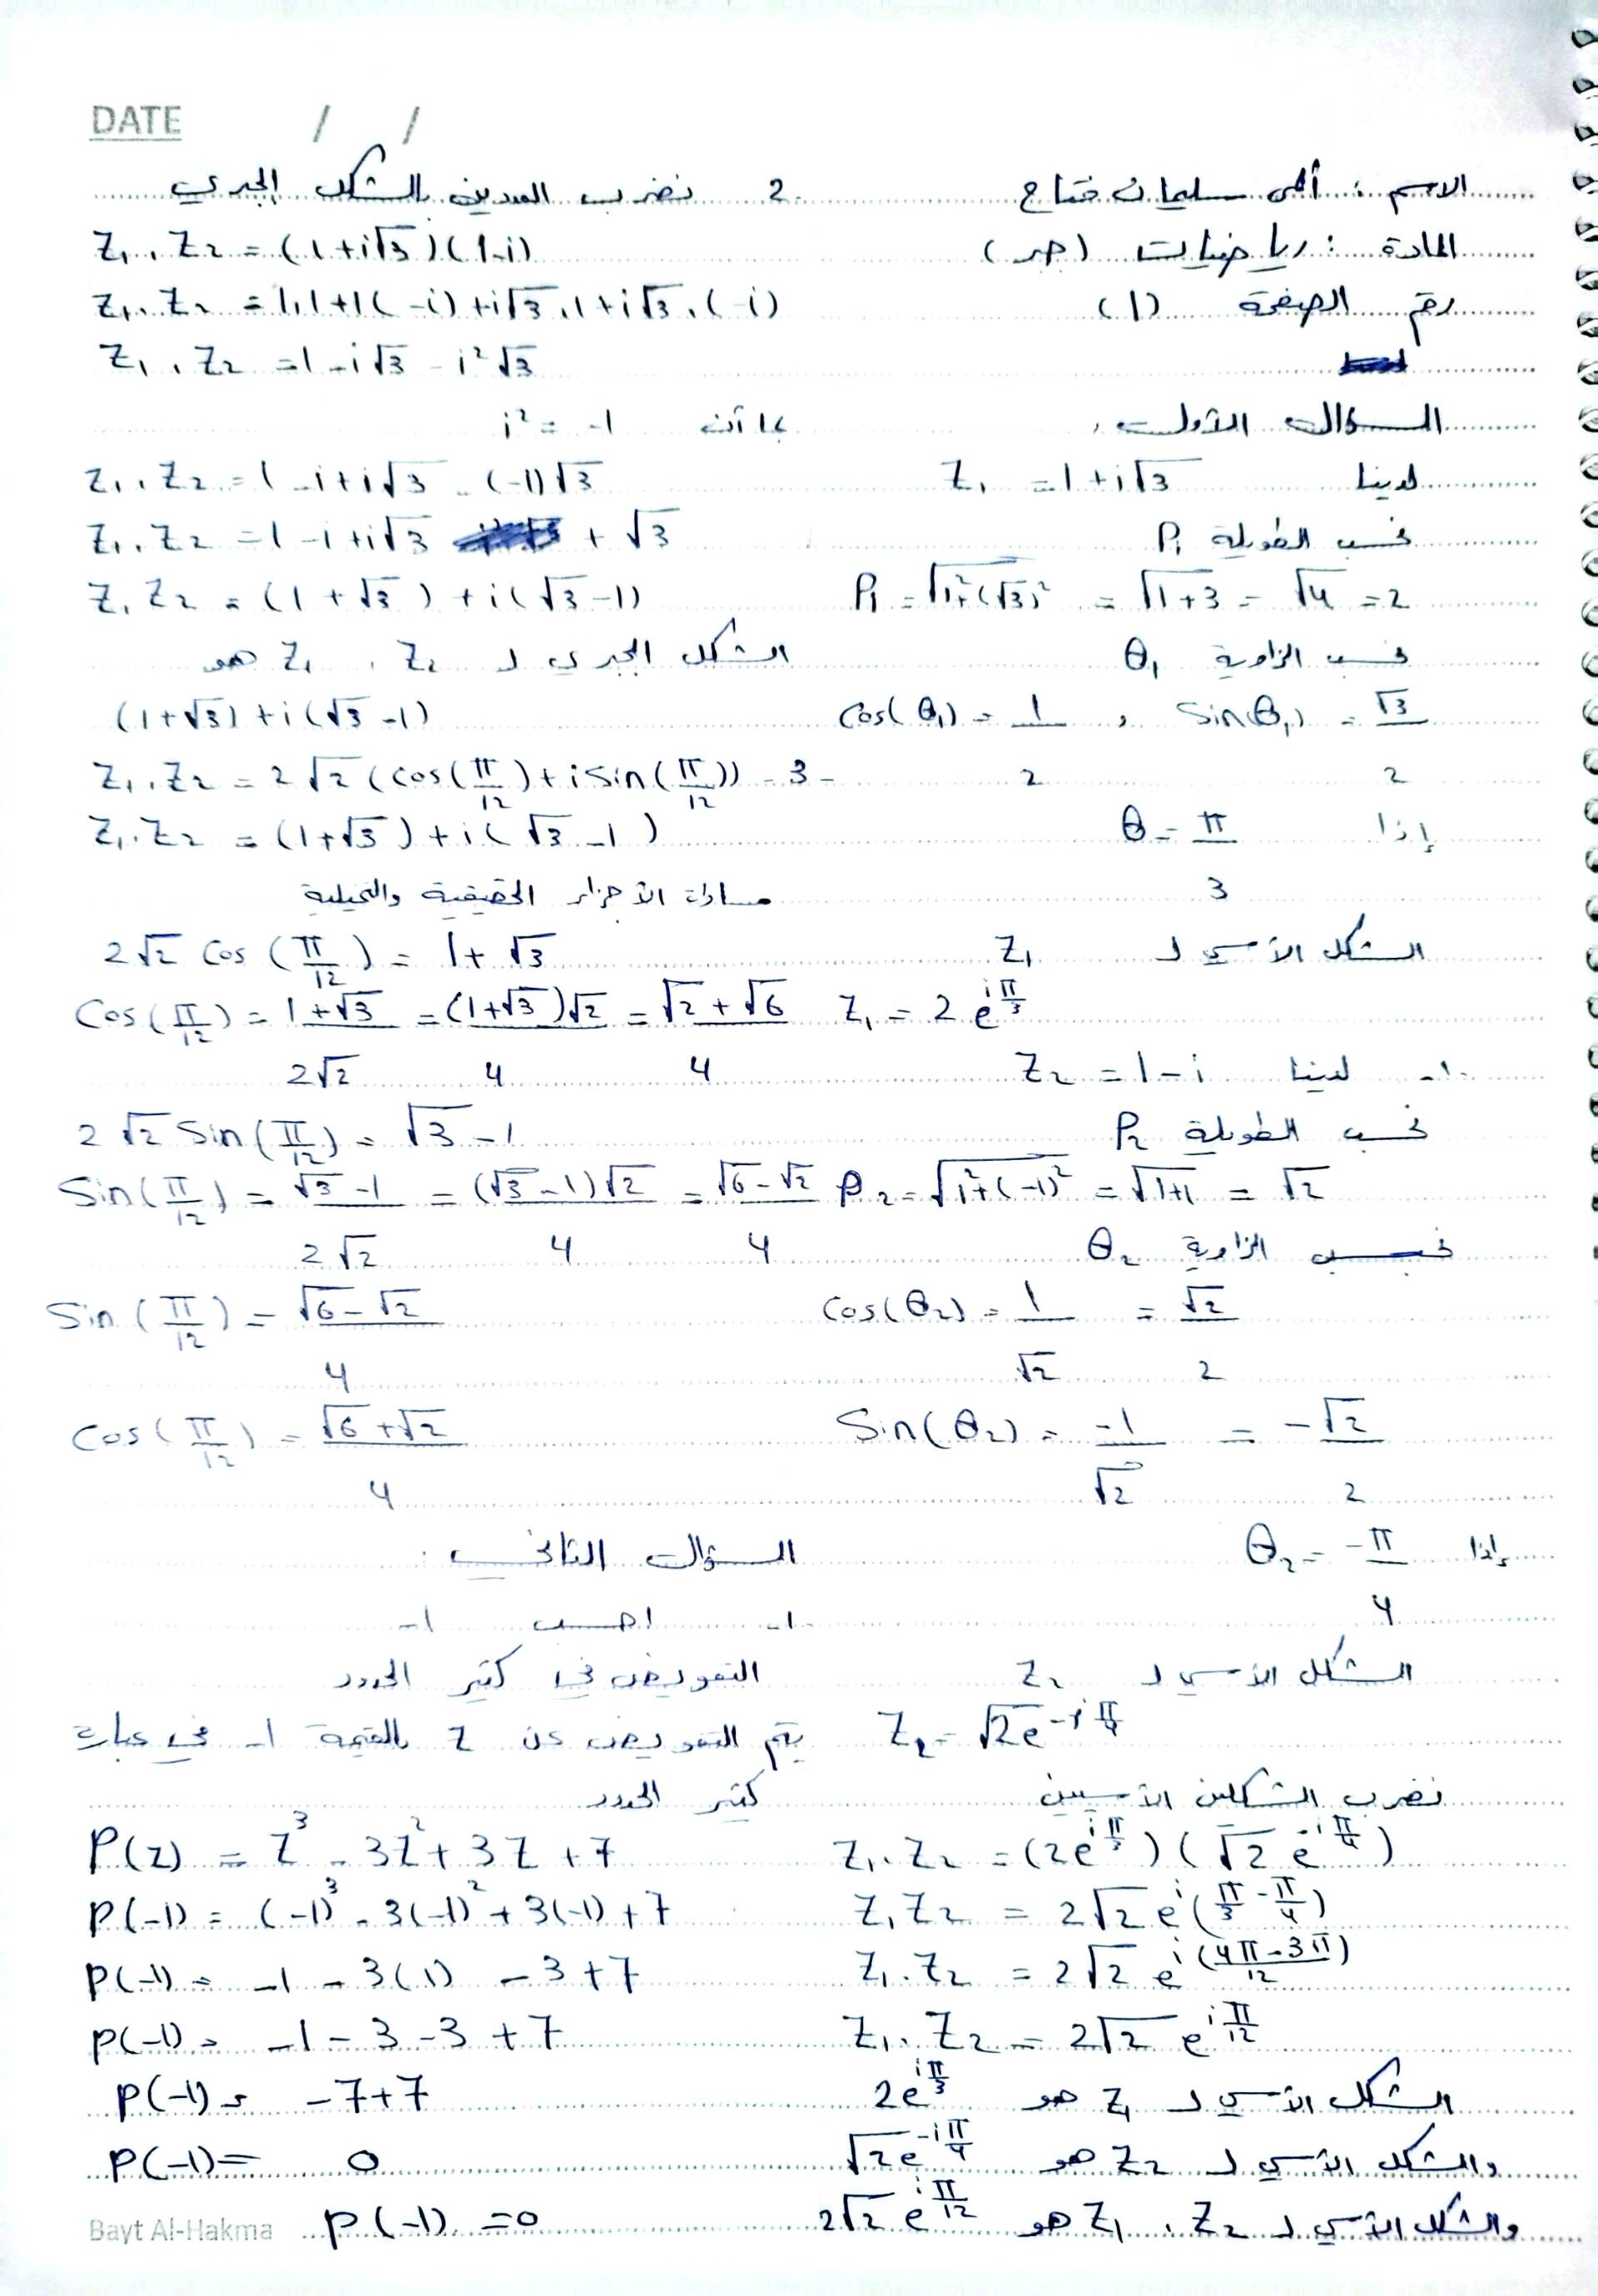 DATE / /
الاسم : ألمى سليمان فتاح
المادة : رياضيات (جبر)
رقم الصفحة (1)
السؤال الأول :
لدينا Z₁ = 1+i√3
نحسب الطويلة P₁
P₁ = √(1²+(√3)²) = √(1+3) = √4 = 2
نحسب الزاوية θ₁
cos(θ₁) = 1/2 , Sin(θ₁) = √3/2
إذا θ = π/3
الشكل الأسي لـ Z₁
Z₁ = 2e^(iπ/3)
1- لدينا Z₂ = 1-i
نحسب الطويلة P₂
P₂ = √(1²+(-1)²) = √(1+1) = √2
نحسب الزاوية θ₂
cos(θ₂) = 1/√2 = √2/2
Sin(θ₂) = -1/√2 = -√2/2
إذا θ₂ = -π/4
الشكل الأسي لـ Z₂
Z₂ = √2e^(-iπ/4)
نضرب الشكلين الأسيين
Z₁.Z₂ = (2e^(iπ/3))(√2 e^(-iπ/4))
Z₁Z₂ = 2√2 e^i(π/3 - π/4)
Z₁.Z₂ = 2√2 e^i((4π-3π)/12)
Z₁.Z₂ = 2√2 e^(iπ/12)
الشكل الأسي لـ Z₁ هو 2e^(iπ/3)
والشكل الأسي لـ Z₂ هو √2e^(-iπ/4)
والشكل الأسي لـ Z₁ . Z₂ هو 2√2 e^(iπ/12)
2. نضرب العددين بالشكل الجبري
Z₁.Z₂ = (1+i√3)(1-i)
Z₁.Z₂ = 1.1+1(-i)+i√3.1+i√3.(-i)
Z₁.Z₂ = 1-i√3-i²√3
بما أن i² = -1
Z₁.Z₂ = 1-i+i√3-(-1)√3
Z₁.Z₂ = 1-i+i√3 + √3
Z₁Z₂ = (1+√3)+i(√3-1)
الشكل الجبري لـ Z₁ . Z₂ هو
(1+√3)+i(√3-1)
3- Z₁.Z₂ = 2√2(cos(π/12)+i Sin(π/12))
Z₁.Z₂ = (1+√3)+i(√3-1)
مساواة الأجزاء الحقيقية والتخيلية
2√2 cos(π/12) = 1+√3
Cos(π/12) = (1+√3)/2√2 = (1+√3)√2/4 = (√2+√6)/4
2√2 Sin(π/12) = √3-1
Sin(π/12) = (√3-1)/2√2 = (√3-1)√2/4 = (√6-√2)/4
Sin(π/12) = (√6-√2)/4
Cos(π/12) = (√6+√2)/4
السؤال الثاني :
1- احسب -1
التعويض في كثير الحدود
يتم التعويض عن Z بالقيمة -1 في عبارة
كثير الحدود
P(z) = Z³-3Z²+3Z+7
P(-1) = (-1)³-3(-1)²+3(-1)+7
P(-1) = -1-3(1)-3+7
P(-1) = -1-3-3+7
P(-1) = -7+7
P(-1) = 0
P(-1) = 0
Bayt Al-Hakma